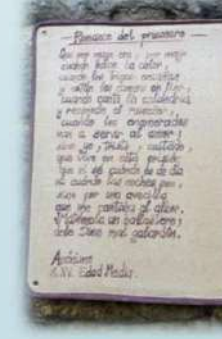 Romance del prisionero
Que por mayo era, por mayo
cuando hace la calor,
cuando los trigos encañan
y están los campos en flor,
cuando canta la calandria
y responde el ruiseñor,
cuando los enamorados
van a servir al amor;
sino yo, triste, cuitado,
que vivo en esta prisión
que ni sé cuándo es de día
ni cuándo las noches son,
sino por una avecilla
que me cantaba al albor.
Matómela un ballestero;
déle Dios mal galardón.
Anónimo
S. XV. Edad Media.